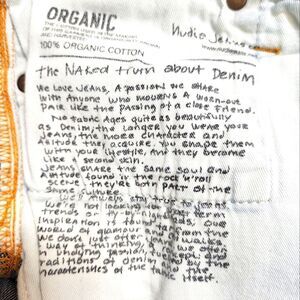 ORGANIC
100% ORGANIC COTTON
Nudie Jeans
the Naked truth about Denim
We love Jeans, A passion we share
with anyone who mourns a worn-out
pair like the passing of a close friend.
No fabric ages quite as beautifully
as Denim, the longer you wear your
jeans, the more character and
Attitude they acquire. You shape them
with your lifestyle, and they become
like a second skin.
Jeans share the same soul and
Attitude found in the rock'n'roll
scene: they're both part of the
same culture.
We'll always stay true to jeans.
We're not looking for
trends or
Inspiration is found
world of glamour and
We don't just offer
way of thinking, a
passion,
traditions of denim and the
characteristics of the fabric itself.